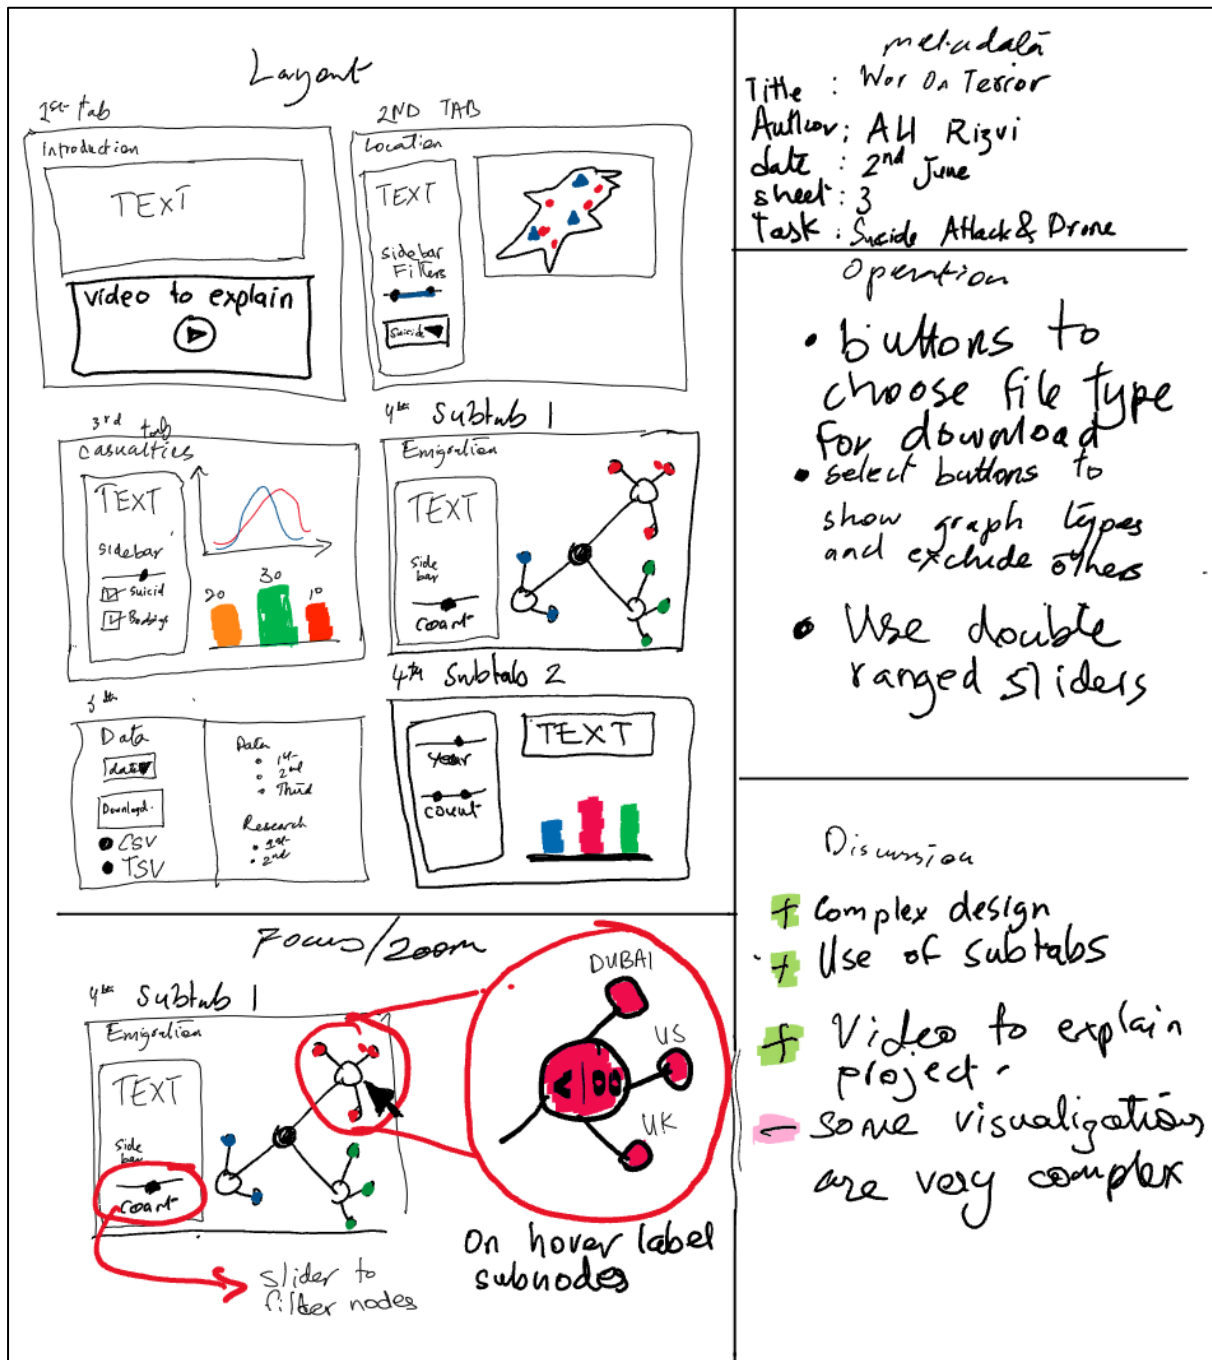 Layout
1st tab
Introduction
TEXT
video to explain
2ND TAB
Location
TEXT
sidebar
Filters
Suicide
3rd tab
Casualties
TEXT
sidebar
Suicid
20
30
10
4th Subtab 1
Emigration
TEXT
side
bar
count
5th
Data
data
Download
CSV
TSV
Data
1st
2nd
Third
Research
1st
2nd
4th Subtab 2
year
count
TEXT
Focus/Zoom
4th Subtab 1
Emigration
TEXT
side
bar
count
slider to
filter nodes
DUBAI
US
UK
On hover label
subnodes
metadata
Title : War On Terror
Author: Ali Rizvi
date : 2nd June
sheet: 3
Task : Suicide Attack & Drone
Operation
• buttons to
choose file type
for download
• select buttons to
show graph types
and exclude others
• Use double
ranged sliders
Discussion
+ Complex design
+ Use of subtabs
+ Video to explain
project.
- some visualizations
are very complex